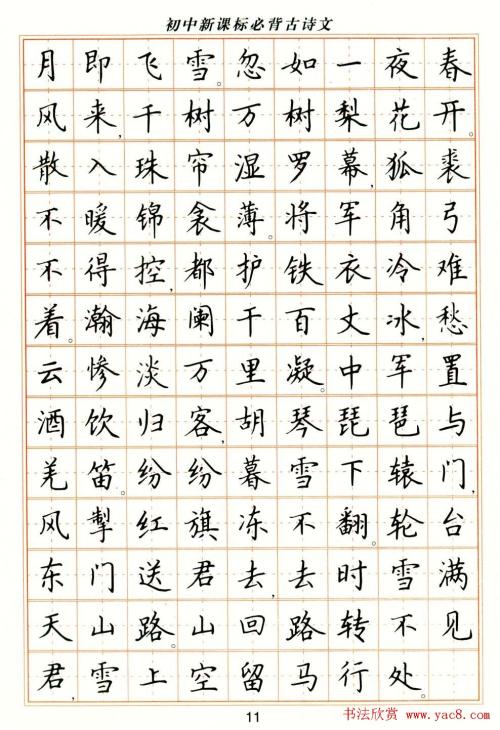 初中新课标必背古诗文
月即飞雪。忽如一夜春
风来,千树万树梨花开。
散入珠帘湿罗幕,狐裘
不暖锦衾薄。将军角弓
不得控,都护铁衣冷难
着。瀚海阑干百丈冰,愁
云惨淡万里凝。中军置
酒饮归客,胡琴琵琶与
羌笛。纷纷暮雪下辕门,
风掣红旗冻不翻。轮台
东门送君去,去时雪满
天山路。山回路转不见
君,雪上空留马行处。
11
书法欣赏
www.yac8.com